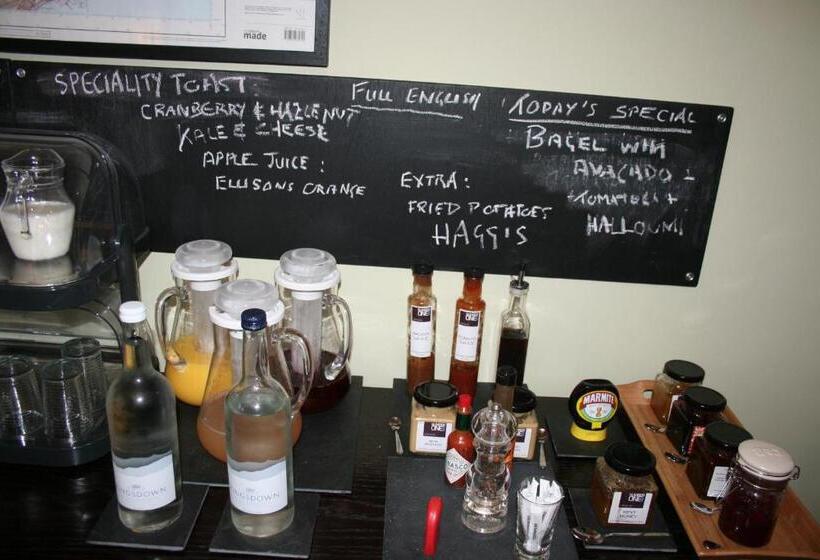 made
SPECIALITY TOAST:
CRANBERRY & HAZLENUT
KALE & CHEESE
APPLE JUICE:
ELLISONS ORANGE
FULL ENGLISH
EXTRA:
FRIED POTATOES
HAGGIS
TODAY'S SPECIAL
BAGEL WITH
AVACADO +
TOMATOES +
HALLOUMI
KINGSDOWN
KINGSDOWN
ONE
ONE
TABASCO
MARMITE
HONEY